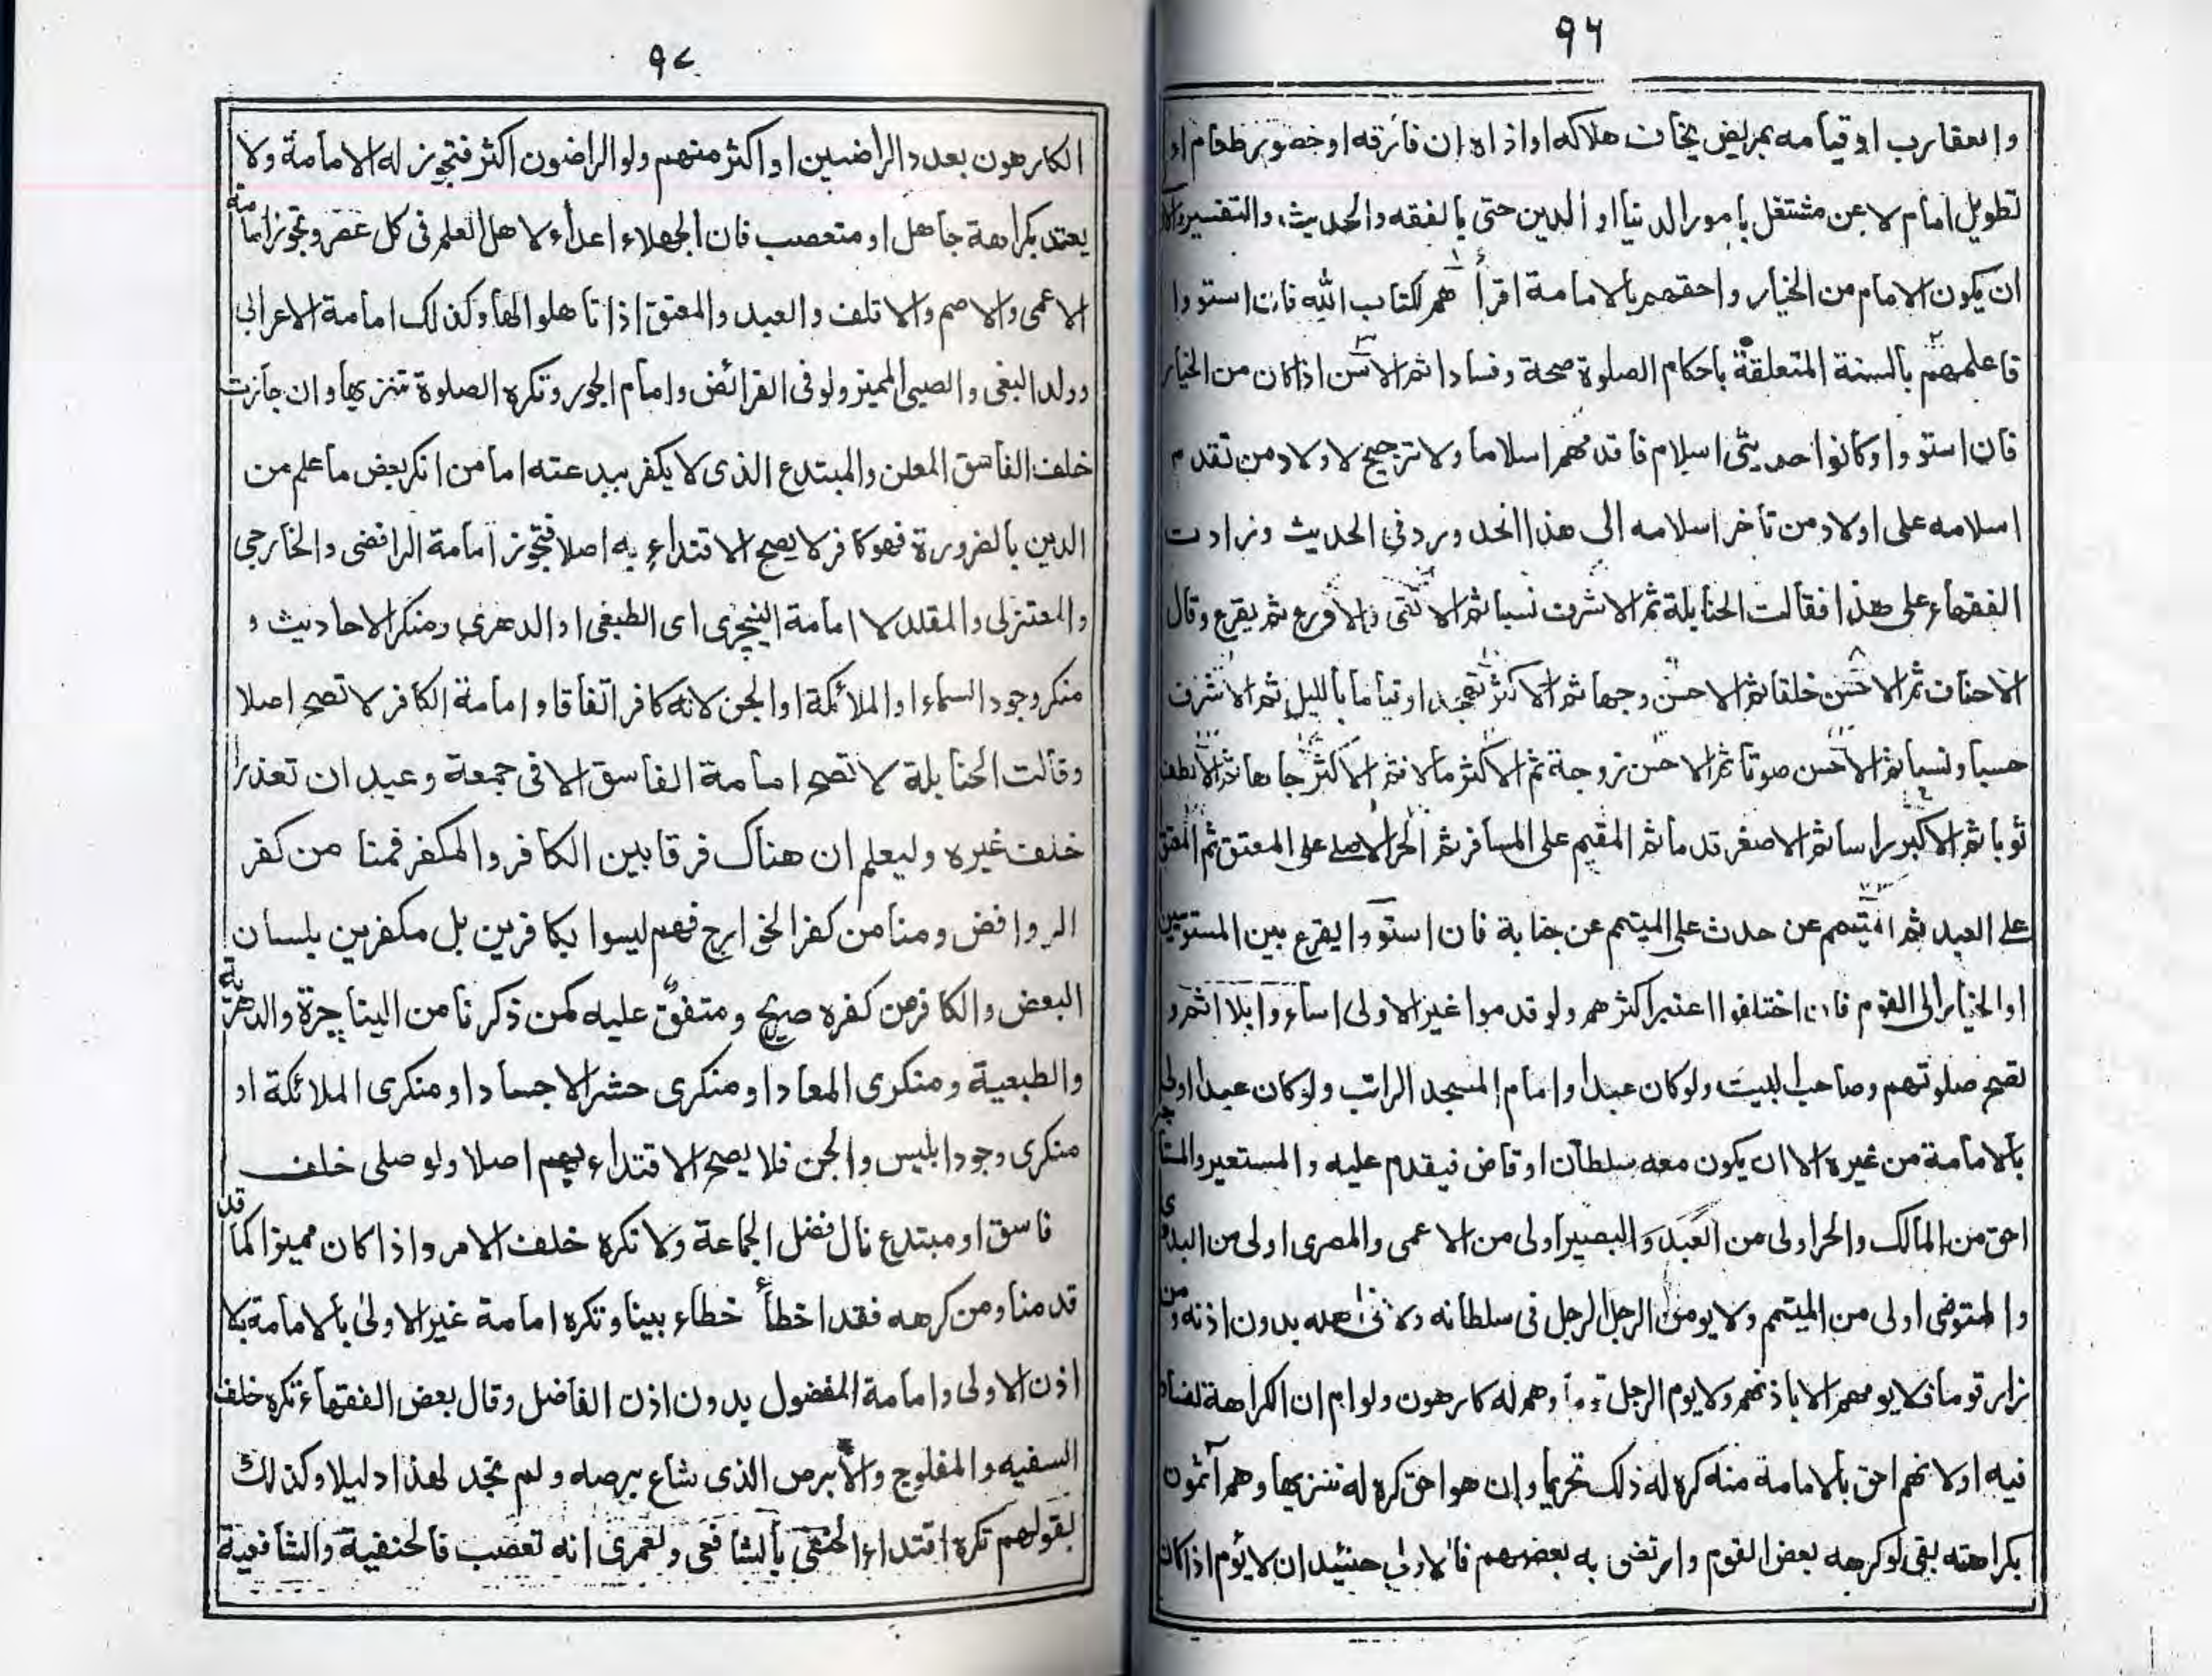 ٩٦
والعقارب او قيامه بمريض يخاف هلاكه او اذاه ان فارقه او خضور طعام او
تطويل امام لا عن مشتغل بامور الدنيا او الدين حتى بالفقه والحديث والتفسير
ان يكون الامام من الخيار واحقهم بالامامة اقرأ هم لكتاب الله فان استووا
فاعلمهم بالسنة المتعلقة باحكام الصلوة صحة وفسادا ثم الاسن اذا كان من الخيار
فان استووا وكانوا حديثى اسلام فاقدمهم اسلاما ولا ترجيح لاولاد من تقدم
اسلامه على اولاد من تأخر اسلامه الى هذا الحد ورد فى الحديث وزادت
الفقهاء على هذا فقالت الحنابلة ثم الاشرف نسبا ثم الاتقى والاورع ثم يقرع وقال
الاحناف ثم الاحسن خلقا ثم الاحسن وجها ثم الاكثر تهجدا وقياما بالليل ثم الاشرف
حسبا ونسبا ثم الاحسن صوتا ثم الاحسن زوجة ثم الاكثر مالا ثم الاكثر جاها ثم الانظف
ثوبا ثم الاكبر راسا ثم الاصغر قدما ثم المقيم على المسافر ثم الحر الاصلے على المعتق ثم المعتق
علے العبد ثم المتيمم عن حدث على الميتمم عن جنابة فان استووا يقرع بين المستويين
او الخيار الى القوم فان اختلفوا اعتبر اكثرهم ولو قدموا غير الاولى اساءوا بلا اثم و
تصح صلوتهم وصاحب البيت ولو كان عبدا وامام المسجد الراتب ولو كان عبدا اولى
بالامامة من غيره الا ان يكون معه سلطان او قاض فيقدم عليه والمستعير والمستأجر
احق من المالك والحر اولى من العبد والبصير اولى من الاعمى والمصرى اولى من البدوى
والمتوضى اولى من الميتمم ولا يومن الرجل الرجل فى سلطانه ولا فى اهله بدون اذنه ومن
زار قوما فلا يومهم الا باذنهم ولا يوم الرجل قوما وهم له كارهون ولو ام ان الكراهة لفساد
فيه او لانهم احق بالامامة منه كره له ذلك تحريما وان هو احق كره له تنزيها وهم آثمون
بكراهته بقى لو كرهه بعض القوم وارتضى به بعضهم فالاولى حنيئذ ان لا يؤم اذا كان
٩٧
الكارهون بعدد الراضيين او اكثر منهم ولو الراضون اكثر فتجوز له الامامة ولا
يعتد بكراهة جاهل او متعصب فان الجهلاء اعداء لاهل العلم فى كل عصر وتجوز امامة
الاعمى والاصم والاقلف والعبد والمعتق اذا تاهلوا لها وكذلك امامة الاعرابى
وولد البغى والصبى المميز ولو فى الفرائض وامام الجور وتكره الصلوة تنزيها وان جازت
خلف الفاسق المعلن والمبتدع الذى لا يكفر ببدعته اما من انكر بعض ما علم من
الدين بالضرورة فهو كافر لا يصح الاقتداء به اصلا فتجوز امامة الرافضى والخارجى
والمعتزلى والمقلد لا امامة النيچرى اى الطبيعى او الدهرى ومنكر الاحاديث و
منكر وجود السماء او الملائكة او الجن لانه كافر اتفاقا وامامة الكافر لا تصح اصلا
وقالت الحنابلة لا تصح امامة الفاسق الا فى جمعة وعيد ان تعذرا
خلف غيره وليعلم ان هناك فرقا بين الكافر والمكفر فمنا من كفر
الروافض ومنا من كفر الخوارج فهم ليسوا بكافرين بل مكفرين بلسان
البعض والكافر من كفره صريح ومتفق عليه كمن ذكرنا من النياچرة والدهرية
والطبعية ومنكرى المعاد او منكرى حشر الاجساد او منكرى الملائكة او
منكرى وجود ابليس والجن فلا يصح الاقتداء بهم اصلا ولو صلى خلف
فاسق او مبتدع نال فضل الجماعة ولا تكره خلف الامرد اذا كان مميزا كما قد
قدمنا ومن كرهه فقد اخطأ خطاء بينا وتكره امامة غير الاولى بالامامة بلا
اذن الاولى وامامة المفضول بدون اذن الفاضل وقال بعض الفقهاء تكره خلف
السفيه والمفلوج والابرص الذى شاع برصه ولم نجد لهذا دليلا وكذلك
بقولهم تكره اقتداء الحنفى بالشافعى ولعمرى انه تعصب فالحنفية والشافعية